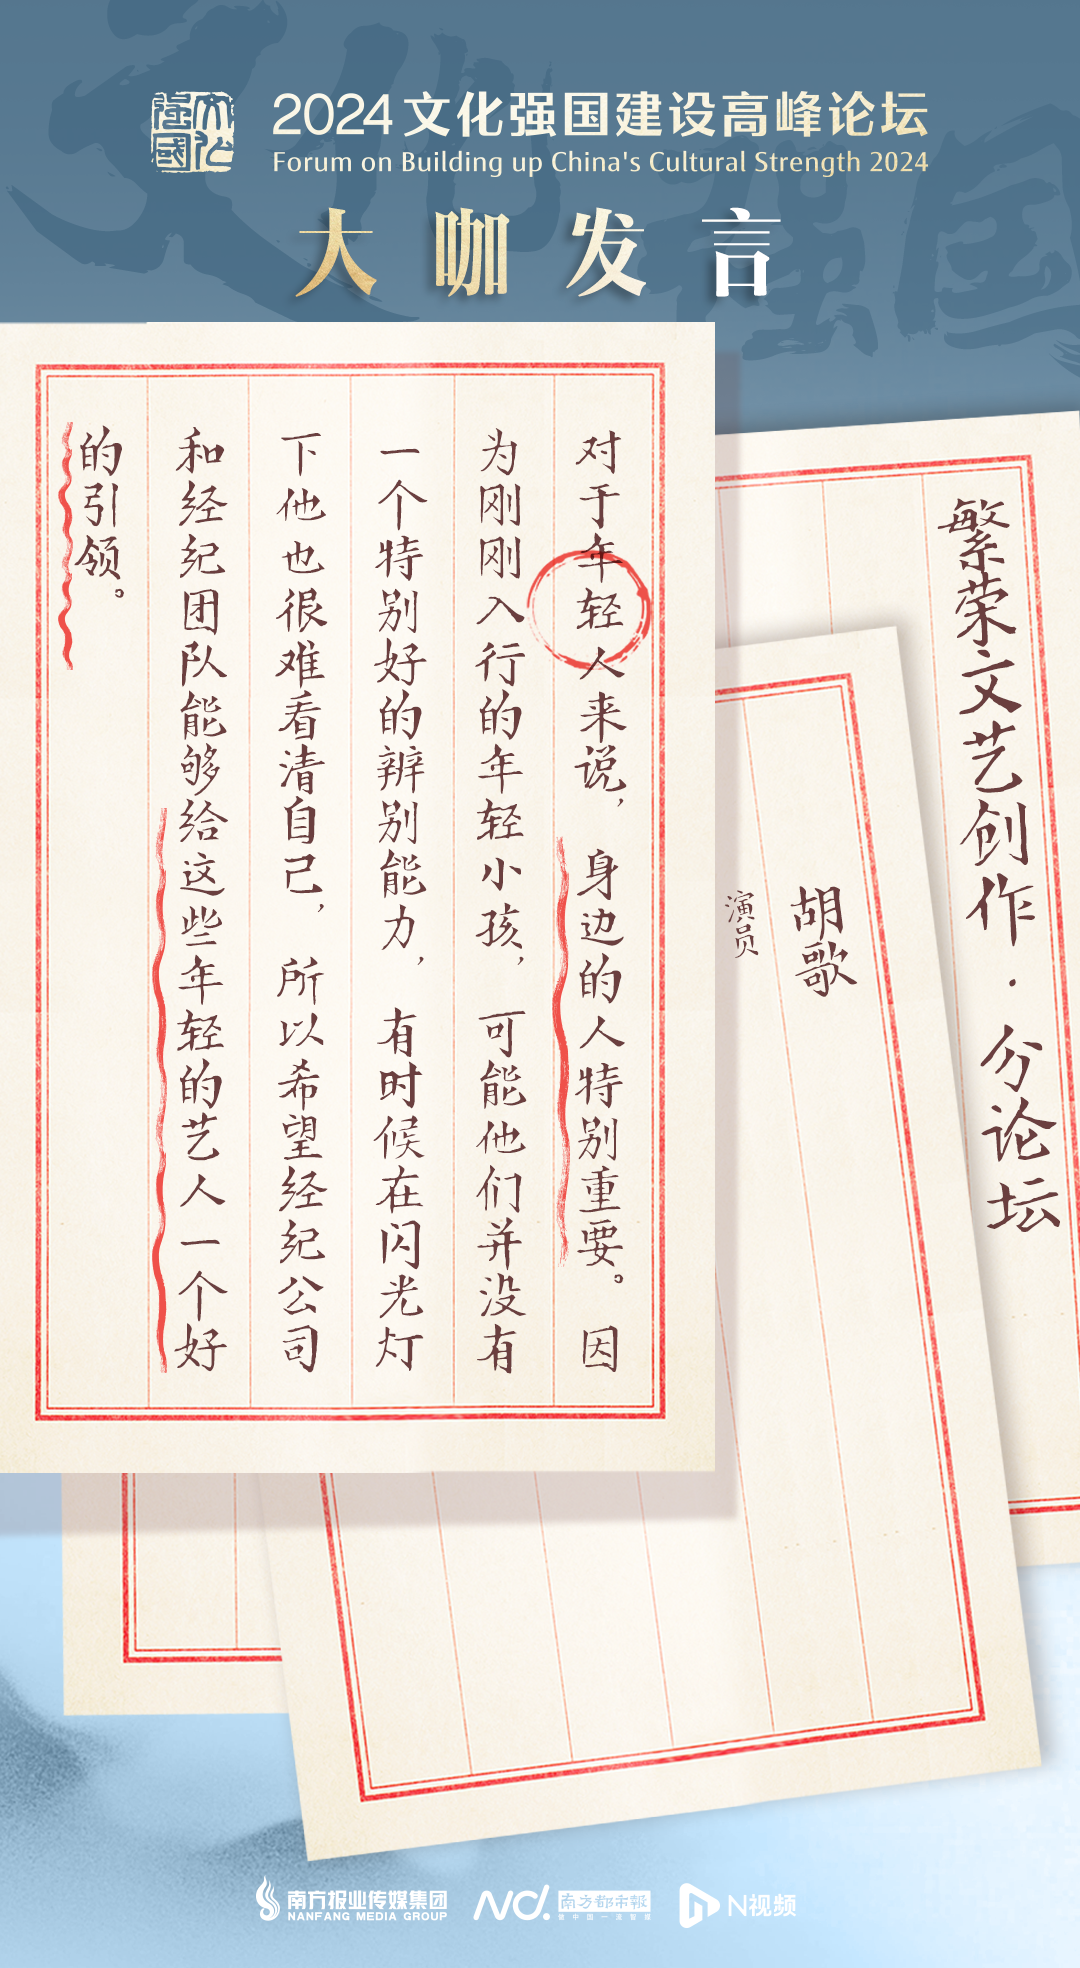 文化强国
2024文化强国建设高峰论坛
Forum on Building up China's Cultural Strength 2024
大咖发言
繁荣文艺创作·分论坛
胡歌
演员
对于年轻人来说，身边的人特别重要。因
为刚刚入行的年轻小孩，可能他们并没有
一个特别好的辨别能力，有时候在闪光灯
下他也很难看清自己，所以希望经纪公司
和经纪团队能够给这些年轻的艺人一个好
的引领。
南方报业传媒集团
NANFANG MEDIA GROUP
南方都市報
N视频